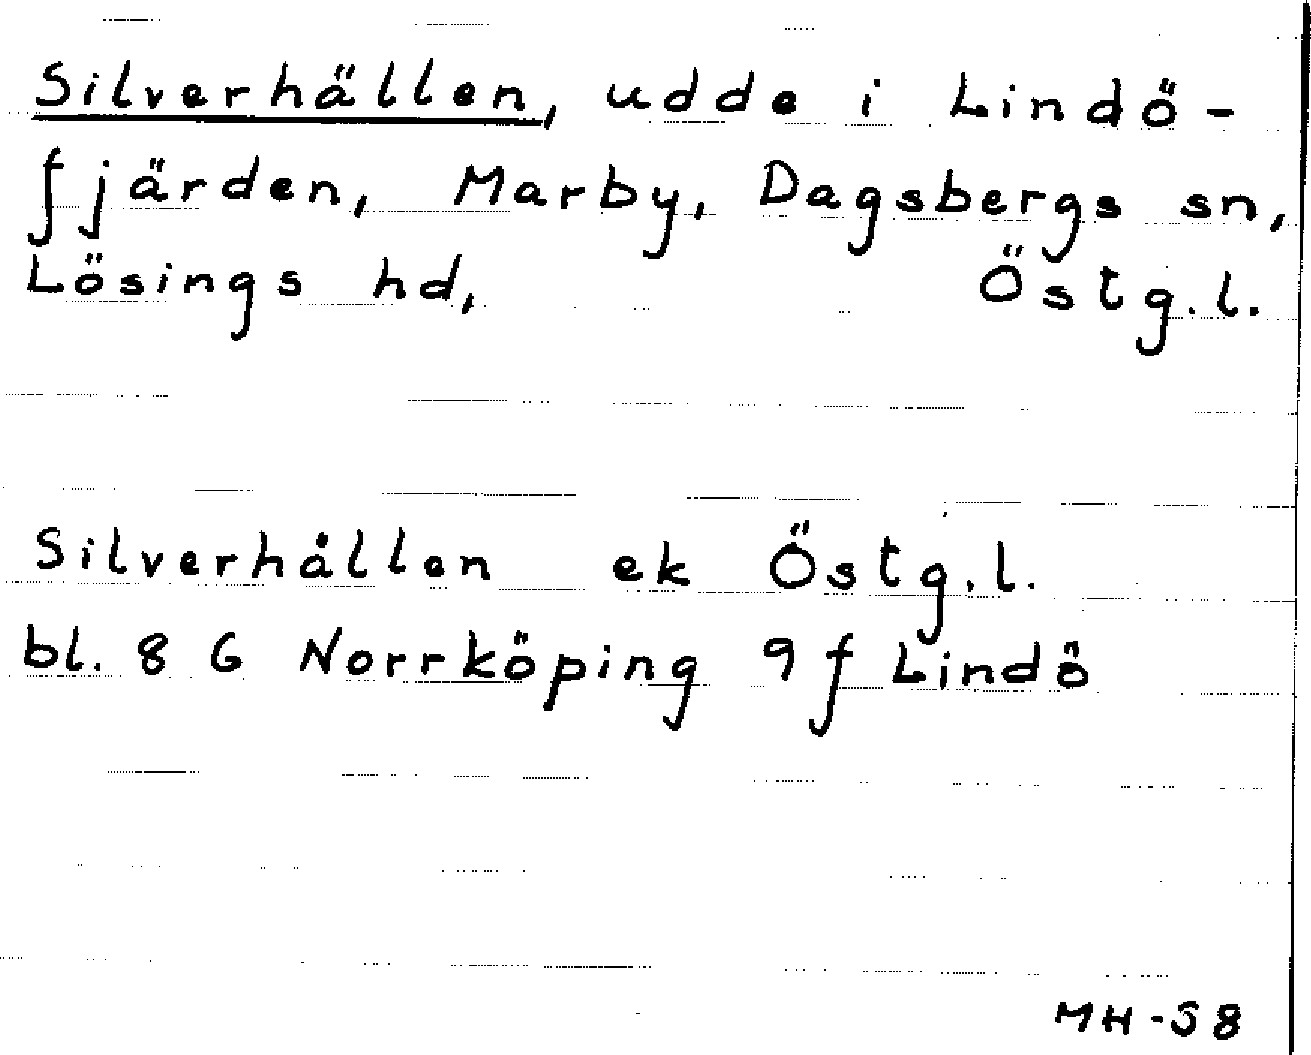 Silverhällen, udde i Lindö-
fjärden, Marby, Dagsbergs sn,
Lösings hd, Östg.l.
Silverhållen ek Östg.l.
bl. 8 G Norrköping 9 f Lindö
MH-58